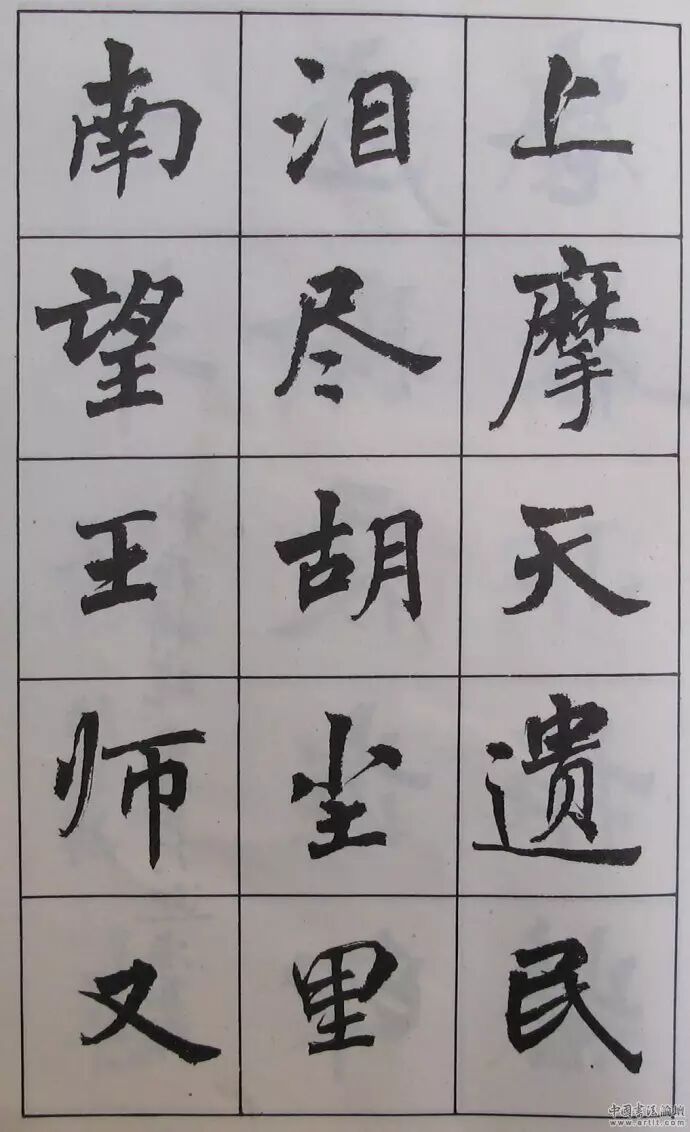 上摩天遗民
泪尽胡尘里
南望王师又
中国书法论坛
www.artit.com